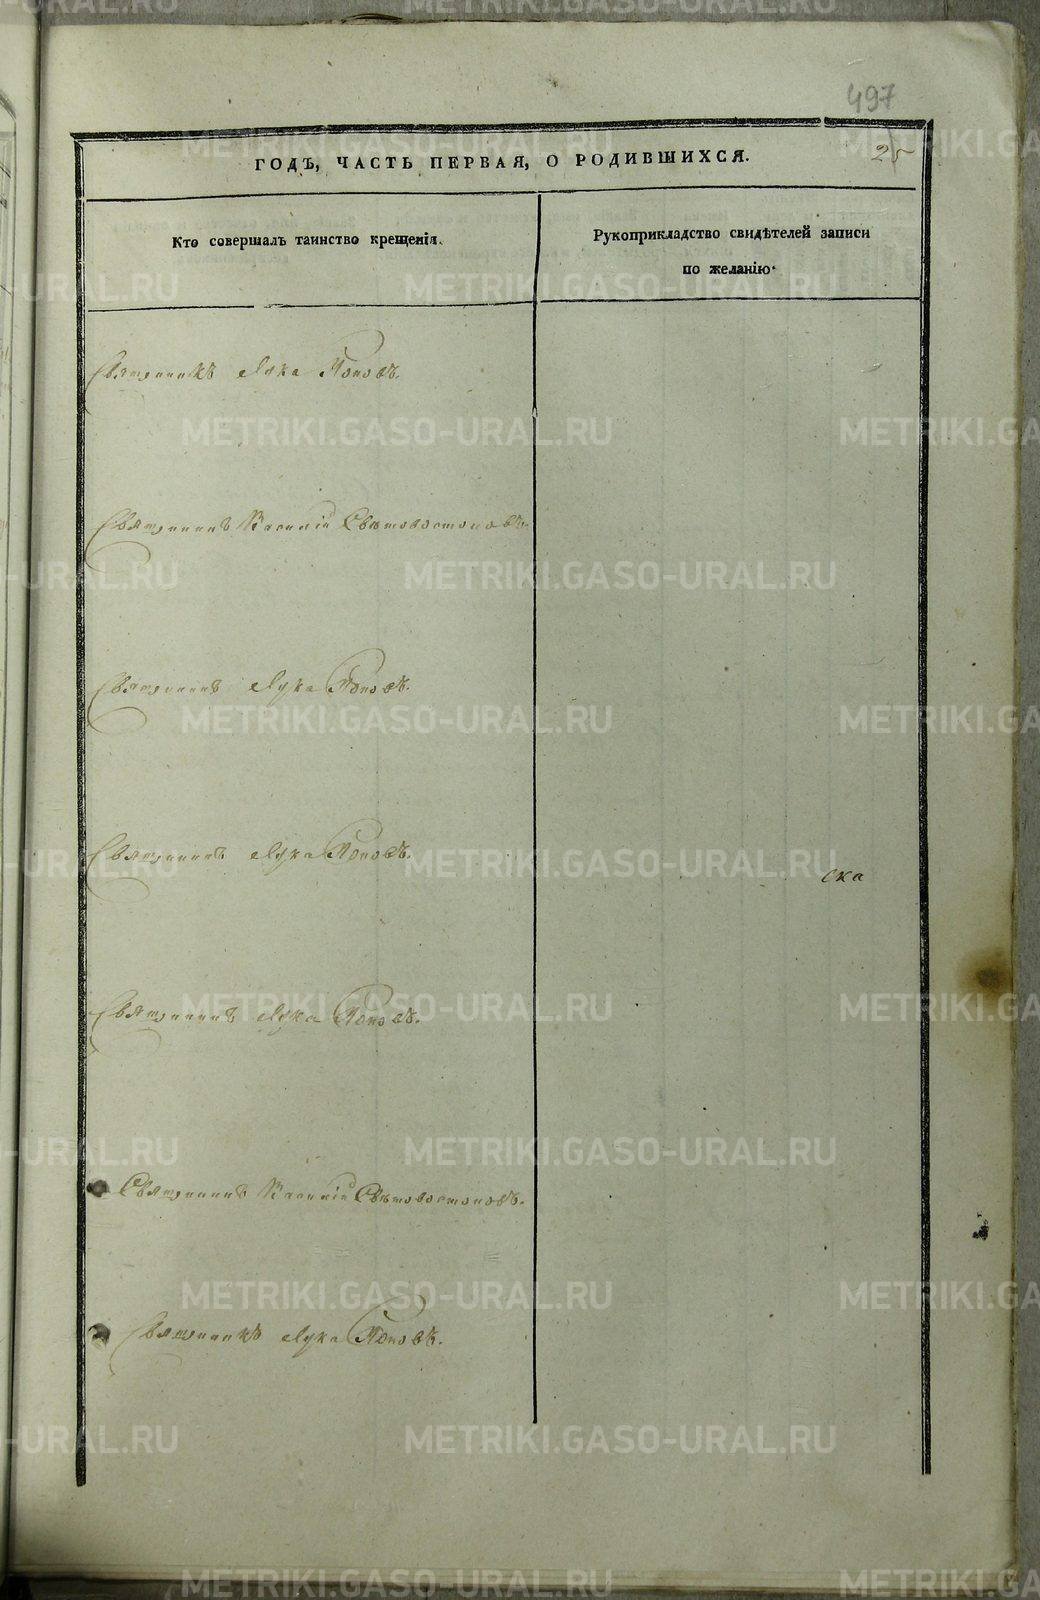 497
ГОДЪ, ЧАСТЬ ПЕРВАЯ, О РОДИВШИХСЯ.
25
Кто совершалъ таинство крещенія.
Рукоприкладство свидѣтелей записи
по желанію.
Священникъ Лука Поповъ.
Священникъ Василій Свѣтовостоковъ.
Священникъ Лука Поповъ.
Священникъ Лука Поповъ.
ска
Священникъ Лука Поповъ.
Священникъ Василій Свѣтовостоковъ.
Священникъ Лука Поповъ.
METRIKI.GASO-URAL.RU